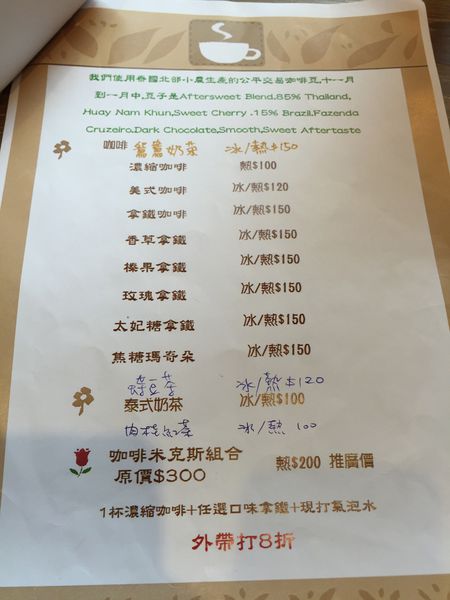 我們使用泰國北部小農生產的公平交易咖啡豆,十一月
到一月中,豆子是Aftersweet Blend,85% Thailand,
Huay Nam Khun,Sweet Cherry .15% Brazil,Fazenda
Cruzeiro,Dark Chocolate,Smooth,Sweet Aftertaste
咖啡 鴛鴦奶茶 冰/熱$150
濃縮咖啡 熱$100
美式咖啡 冰/熱$120
拿鐵咖啡 冰/熱$150
香草拿鐵 冰/熱$150
榛果拿鐵 冰/熱$150
玫瑰拿鐵 冰/熱$150
太妃糖拿鐵 冰/熱$150
焦糖瑪奇朵 冰/熱$150
蝶豆茶 冰/熱$120
泰式奶茶 冰/熱$100
肉桂紅茶 冰/熱 100
咖啡米克斯組合 熱$200 推廣價
原價$300
1杯濃縮咖啡+任選口味拿鐵+現打氣泡水
外帶打8折